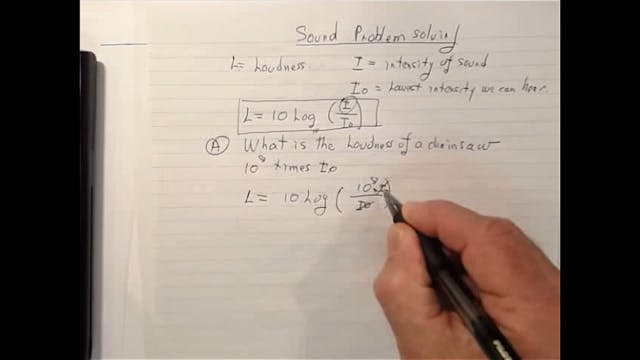 Sound Problem solving
L = Loudness I = intensity of sound
Io = Lowest intensity we can hear.
L = 10 Log (I/Io)
(A) What is the Loudness of a chainsaw
10⁸ times Io
L = 10 Log (10⁸·I/Io